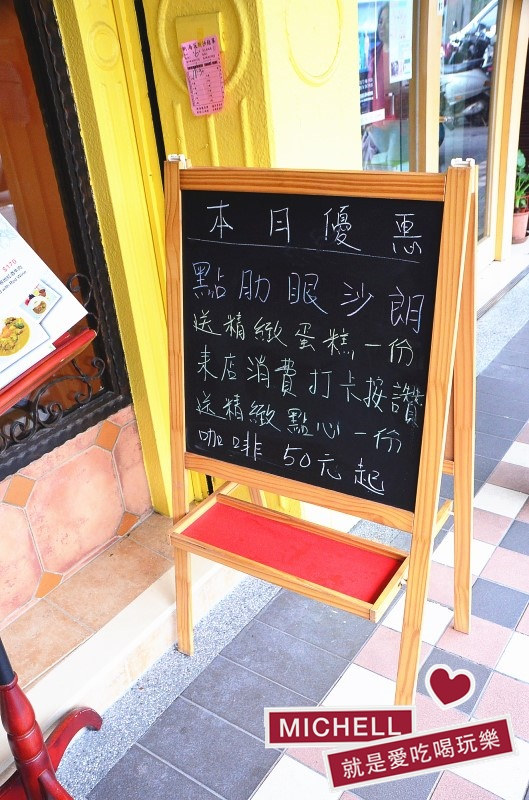 本日優惠
點肋眼沙朗
送精緻蛋糕一份
來店消費打卡按讚
送精緻點心一份
咖啡 50元起
$170
MICHELL
就是愛吃喝玩樂